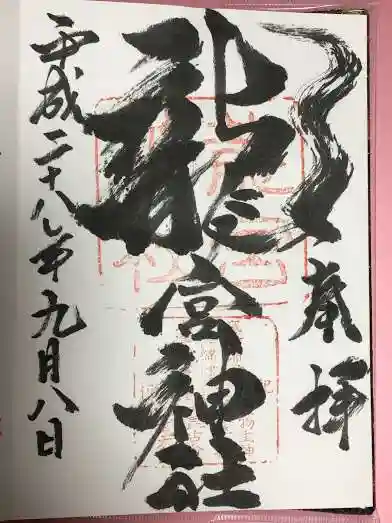 奉拝
龍宮神社
平成二十八年九月八日